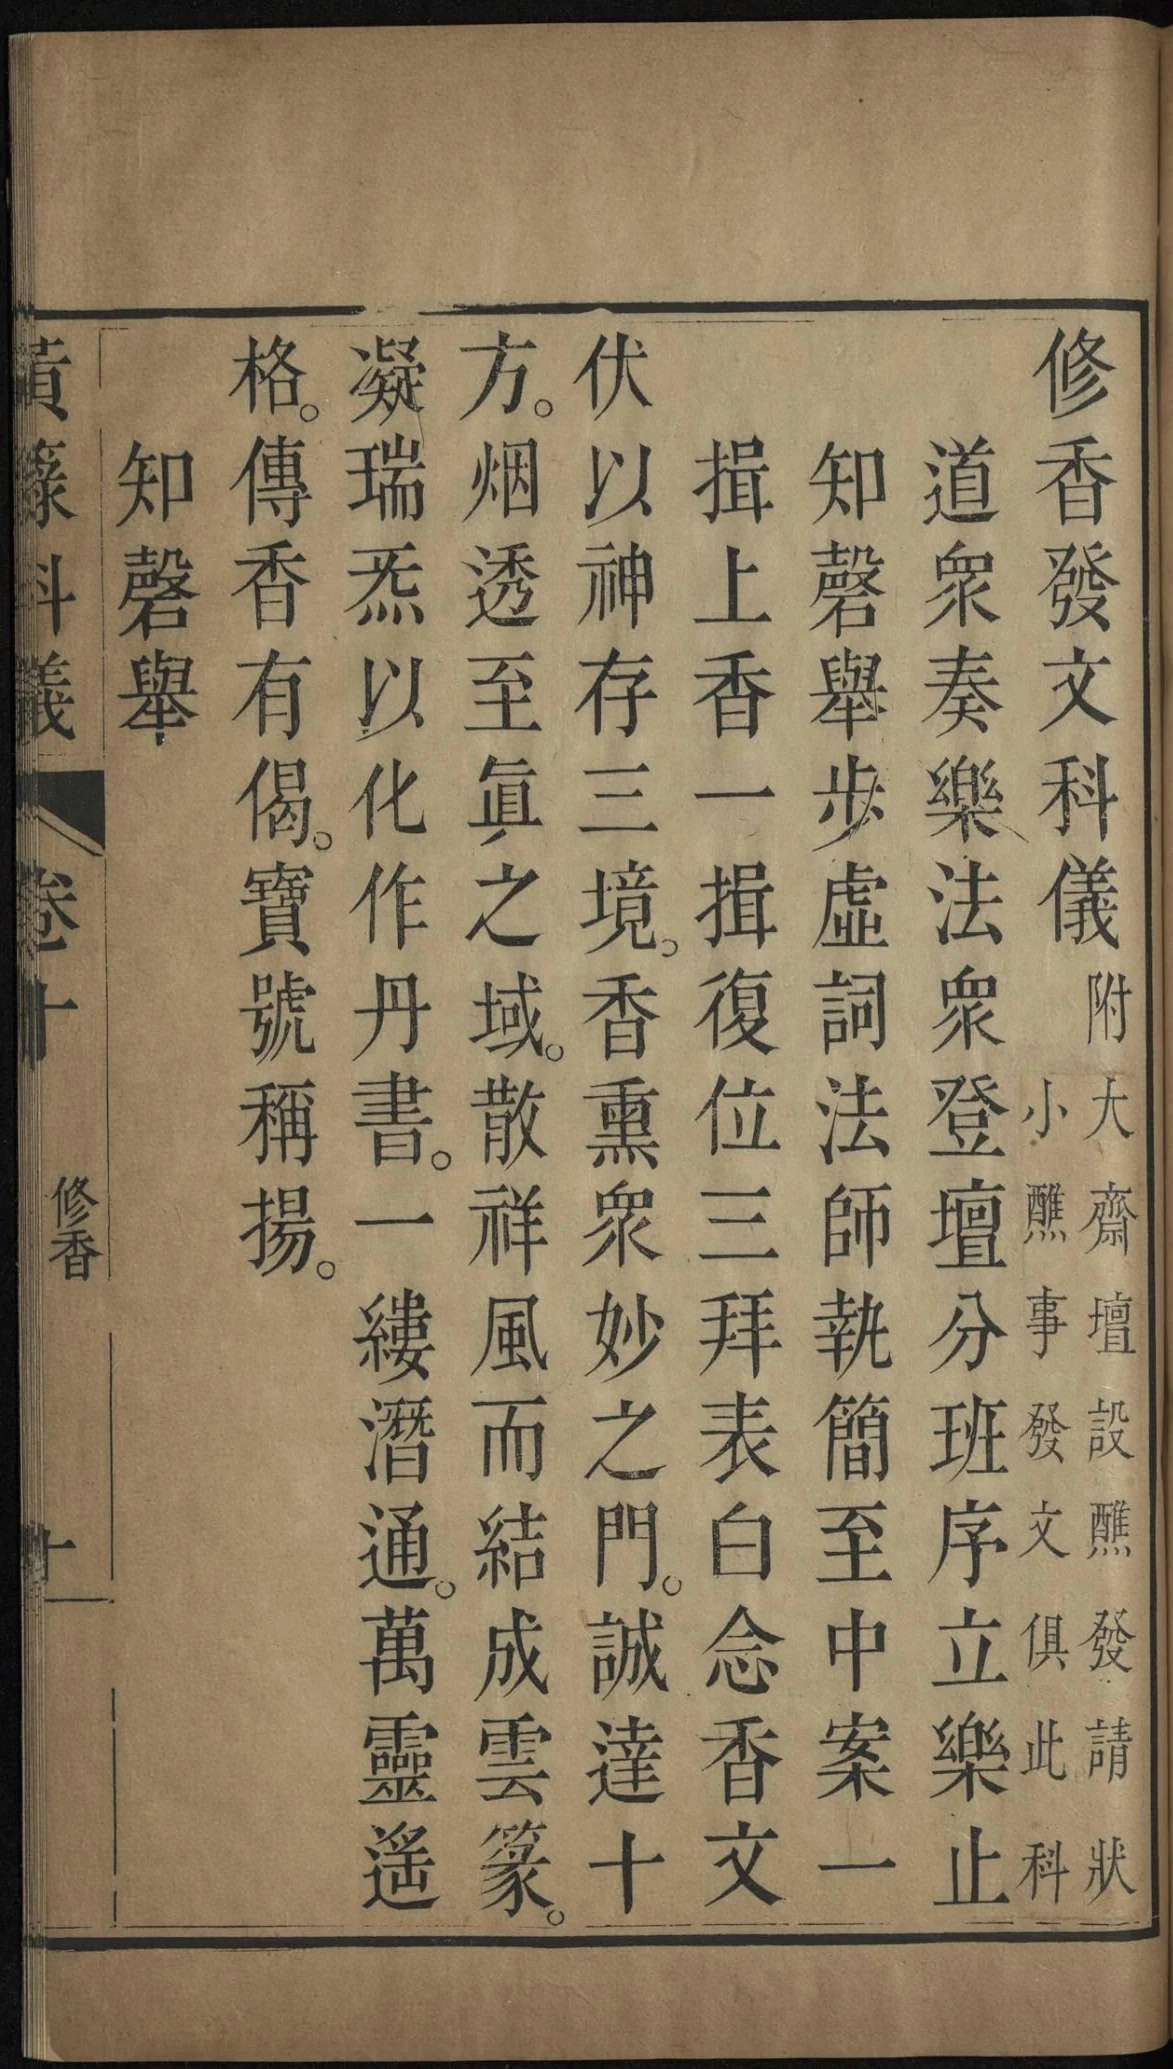 修香發文科儀附大齋壇設醮發請狀
小醮事發文俱此科
道眾奏樂法眾登壇分班序立樂止
知磬舉步虛詞法師執簡至中案一
揖上香一揖復位三拜表白念香文
伏以神存三境。香熏眾妙之門。誠達十
方。烟透至眞之域。散祥風而結成雲篆。
凝瑞炁以化作丹書。一縷潛通。萬靈遥
格。傳香有偈。寶號稱揚。
知磬舉
黃籙科儀 卷十 修香 十